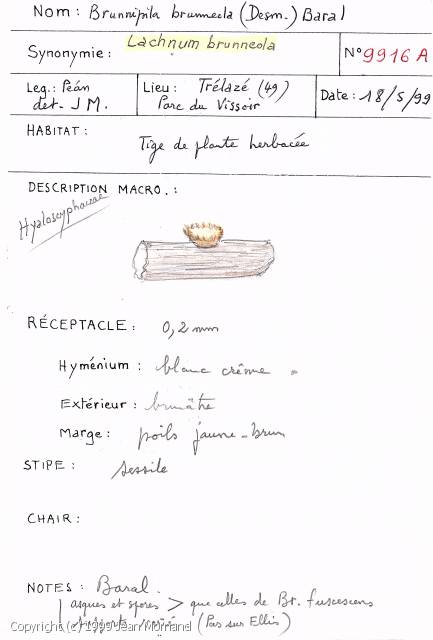 Nom : Brunnipila brunneola (Desm.) Baral
Synonymie : Lachnum brunneola N° 9916 A
Leg. : Péan Lieu : Trélazé (49) Date : 18/5/99
det. J M. Parc du Vissoir
HABITAT :
Tige de plante herbacée
DESCRIPTION MACRO. :
Hyaloscyphaceae
RÉCEPTACLE : 0,2 mm
Hyménium : blanc crème
Extérieur : brunâtre
Marge : poils jaune-brun
STIPE : sessile
CHAIR :
NOTES : Baral.
asques et spores > que celles de Br. fuscescens
(Pas sur Ellis)
Copyright (c) 1999 Jean Mornand